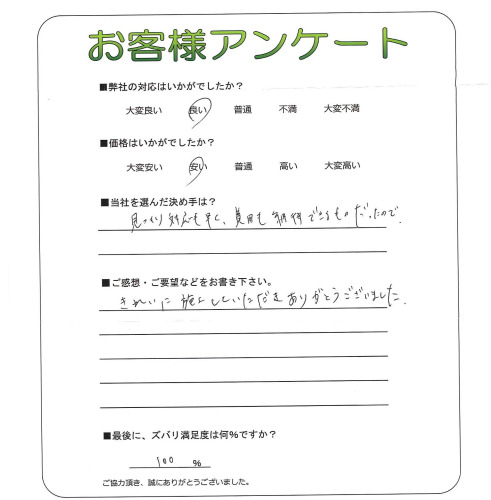 お客様アンケート
■弊社の対応はいかがでしたか？
大変良い 良い 普通 不満 大変不満
■価格はいかがでしたか？
大変安い 安い 普通 高い 大変高い
■当社を選んだ決め手は？
見つもり対応も早く、費用も納得できるものだったので.
■ご感想・ご要望などをお書き下さい。
きれいに施工していただきありがとうございました.
■最後に、ズバリ満足度は何％ですか？
100 %
ご協力頂き、誠にありがとうございました。